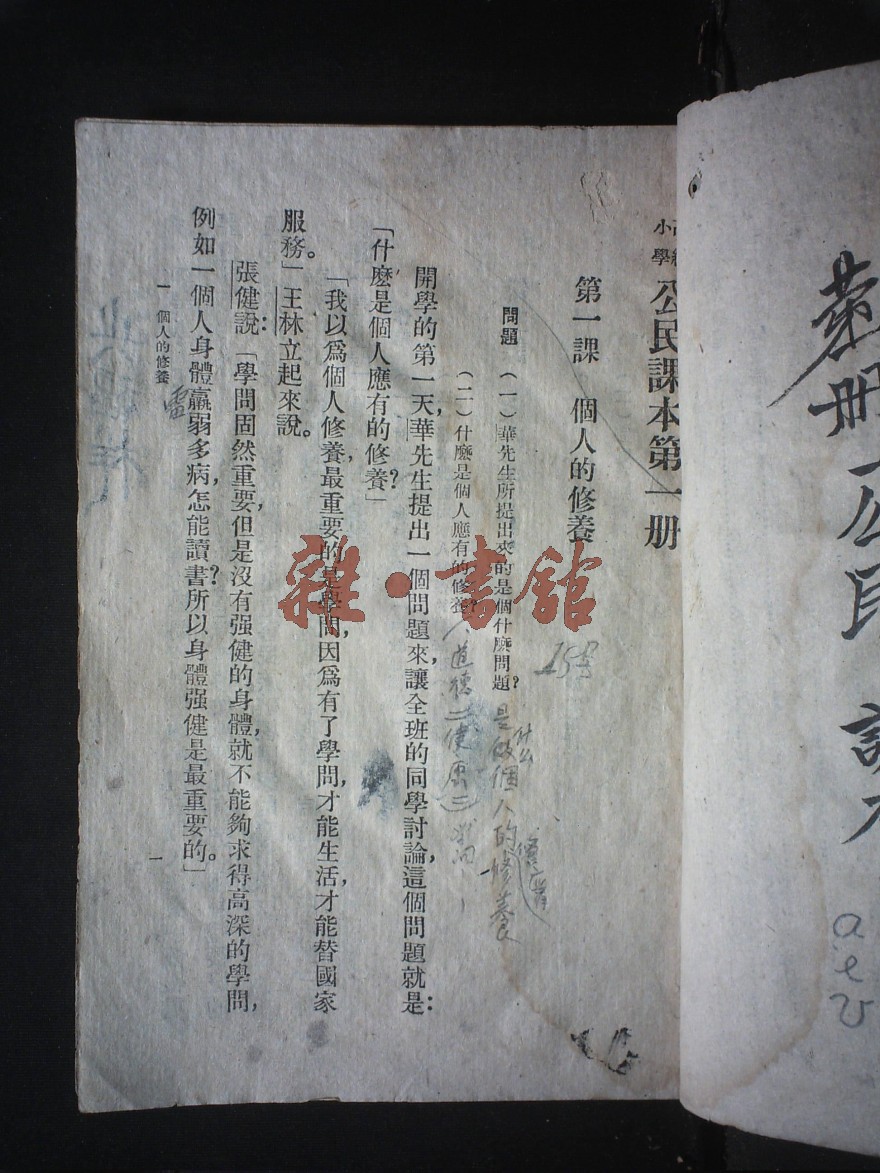 小學
公民課本第一册
第一課　個人的修養
問題　（一）華先生所提出來的是個什麽問題？
（二）什麽是個人應有的修養？
開學的第一天，華先生提出一個問題來，讓全班的同學討論，這個問題就是：
「什麽是個人應有的修養？」
「我以爲個人修養最重要的是學問，因爲有了學問，才能生活，才能替國家
服務。」王林立起來說。
張健說：「學問固然重要，但是沒有强健的身體，就不能夠求得高深的學問，
例如一個人身體羸弱多病，怎能讀書？所以身體强健是最重要的。」
一　個人的修養
一
是做個人的修養
什么
應有
一、道德二健康三學問
15号
雜·書館
册
公民
a
e
v